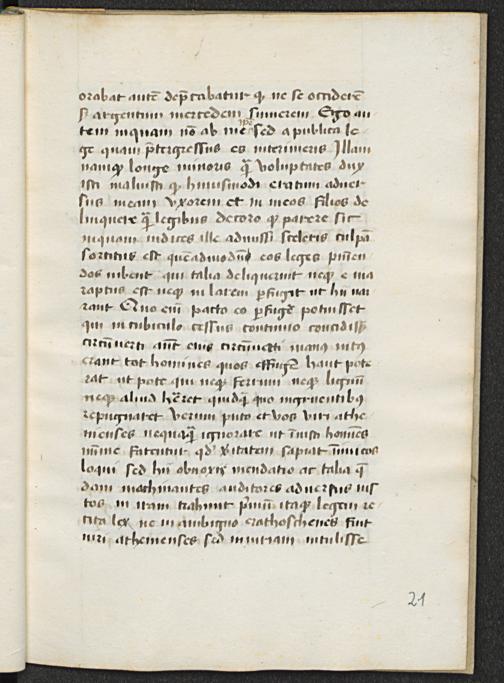 orabat autē dep̄cabatur qꝫ ne se occiderē
sꝫ argentum mercedem sumerem Ergo au
tem inquam nō ab me ipse sed a publica le
ge quam p̄tergressus es interimeris Illam
namqꝫ longe minoris qꝫ̄ voluptates dux
isti maluisti qꝫ huiusmodi erratum aduer
sus meam vxorem et in meos filios de
linquere qꝫ̄ legibus decoro qꝫ parere sic
inquam iudices ille admissi sceleris culpā
sortitus est queadmodū eos leges punien
dos iubent qui talia deliquerint neqꝫ e uia
raptus est neqꝫ in larem ꝑfugit ut hii nar
rant Quo eni pacto eo ꝑfugē potuisset
qui in cubiculo cessus continuo concidisset
circūuerti aūt eius circūuerti manꝰ intꝰ
erant tot homines quos effugē haut pote
rat ut pote qui neqꝫ ferrum neqꝫ lignū
neqꝫ aliud h̄eret quidqꝫ̄ quo ingruentibꝰ
repugnaret Verum puto et vos viri athe
nienses nequaqꝫ̄ ignorare ut īiusti hoīes
mīme fatentur qd' v̄itatem sapiat īimicos
loqui sed hii obnoxie mendatio ac talia qꝫ̄
dam machinantes auditores aduersus ius
tos in iram trahunt Prīmū itaqꝫ legem re
cita lex ne in ambiguo erathoschenes sunt
uiri athenienses sed iniuriam intulisse
21